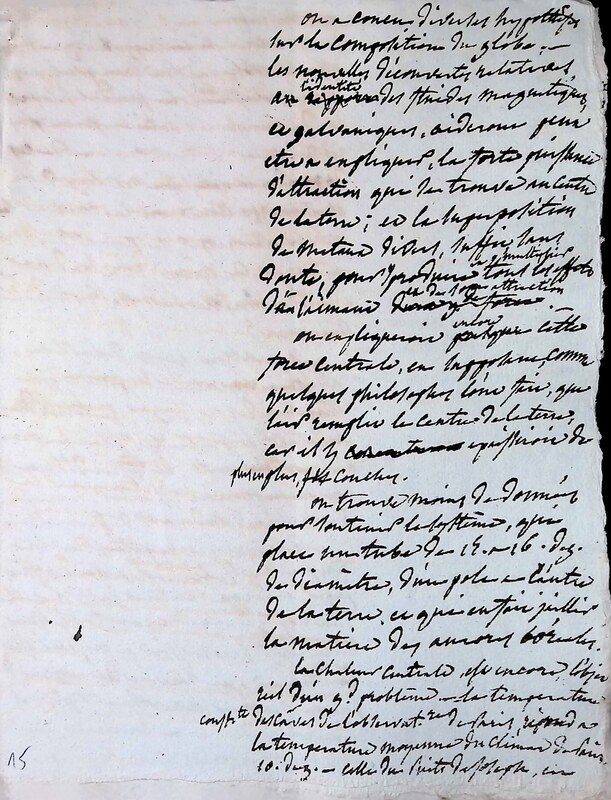 on a concu diverses hypothèses
sur la composition du globe. —
les nouvelles découvertes relatives
l'identité
au rapport des fluides magnetiques,
et galvaniques, aideront peut
etre a expliquer, la forte puissance
d'attraction qui se trouve au centre
de la terre ; et la superposition
de metaux divers, suffit, sans
doute, pour produire et multiplier tous les effets
d'un aimant et de son attraction
on expliqueroit encore cette
force centrale, en supposant, comme
quelques philosophes l'ont fait, que
l'air remplit le centre de la terre,
car il s'y epaissiroit de
plus en plus, couches.
on trouve moins de données
pour soutenir le systême, qui
place un tube de 15. a 16. deg.
de diamètre, d'un pole a l'autre
de la terre, et qui en fait jaillir
la matiere des aurores boréales.
la chaleur centrale, est encore l'objet
d'un gd. problème — la temperature
constte. des caves de l'observatre. de Paris, repond a
la temperature moyenne du climat de Paris.
10. deg. — celle du Puits de Joseph, en
15